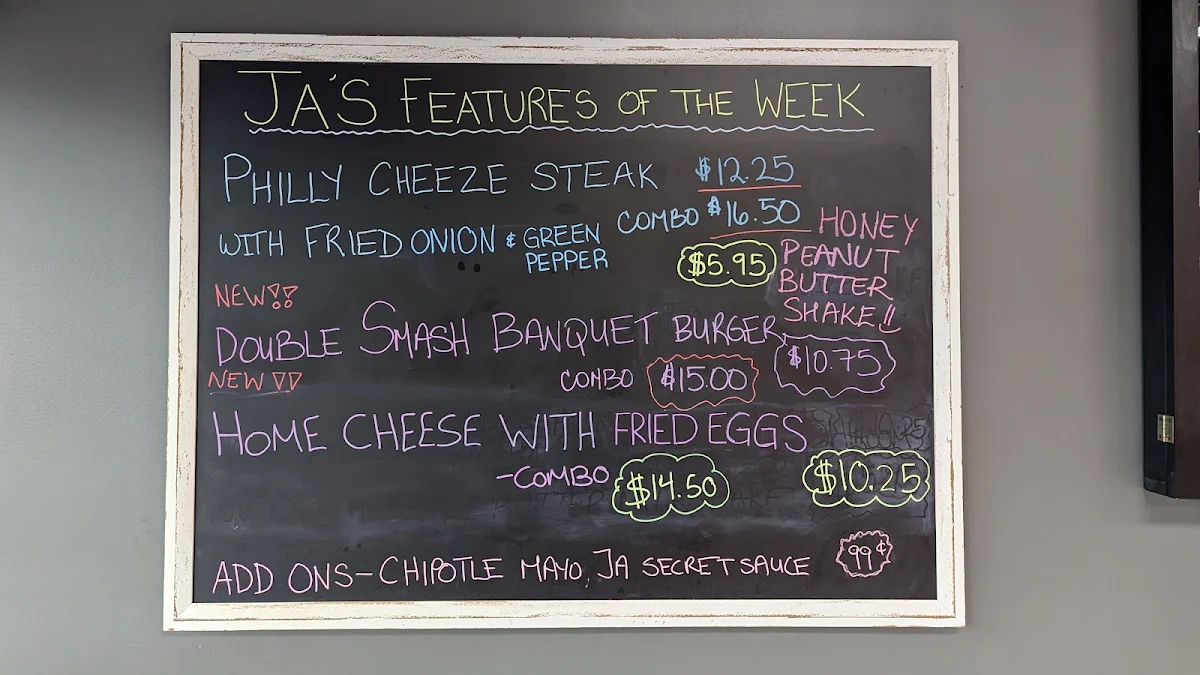 JA'S FEATURES OF THE WEEK
PHILLY CHEEZE STEAK $12.25
WITH FRIED ONION & GREEN PEPPER COMBO $16.50
$5.95 HONEY
PEANUT
BUTTER
SHAKE!!
NEW!!
DOUBLE SMASH BANQUET BURGER $10.75
COMBO $15.00
NEW!!
HOME CHEESE WITH FRIED EGGS $10.25
-COMBO $14.50
ADD ONS-CHIPOTLE MAYO, JA SECRET SAUCE 99¢